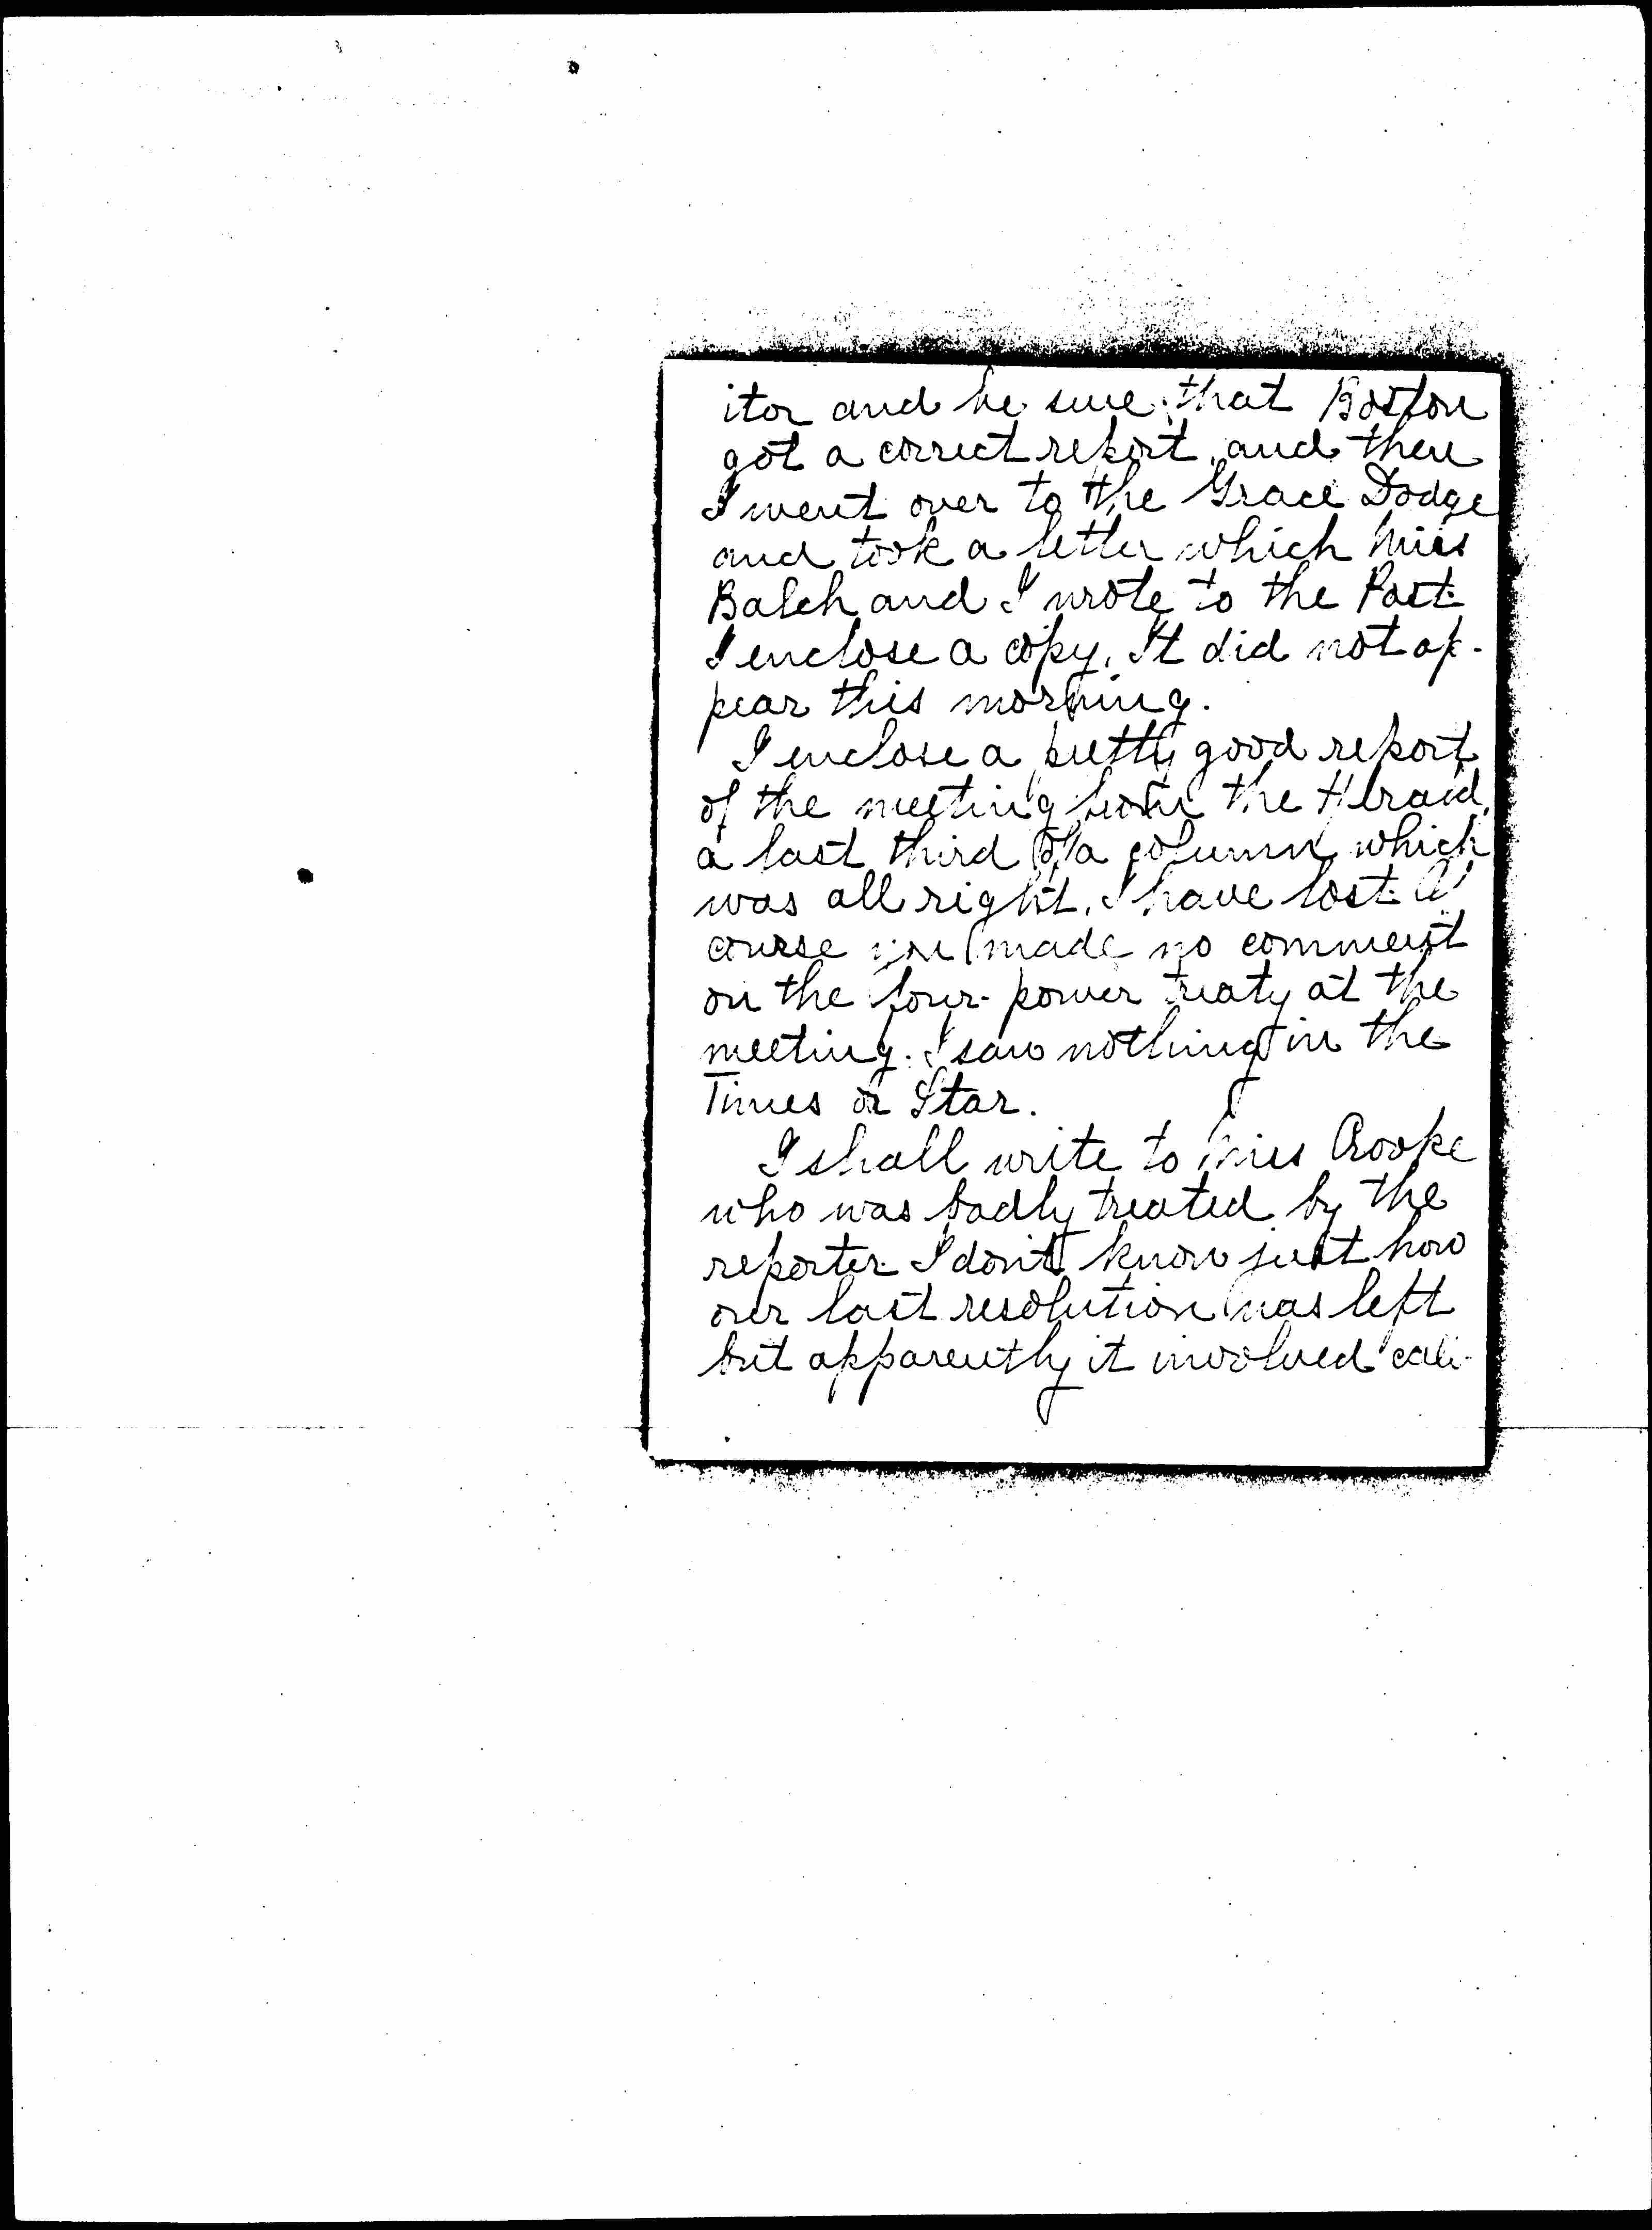 itor and be sure that Boston
got a correct report, and then
I went over to the Grace Dodge
and took a letter which Miss
Balch and I wrote to the Post.
I enclose a copy. It did not ap-
pear this morning.
I enclose a pretty good report
of the meeting from the Herald,
a last third of a column which
was all right, I have lost. Of
course you made no comment
on the four-power treaty at the
meeting. I saw nothing in the
Times or Star.
I shall write to Miss Crooke
who was badly treated by the
reporter. I don't know just how
our last resolution was left
but apparently it involved call-